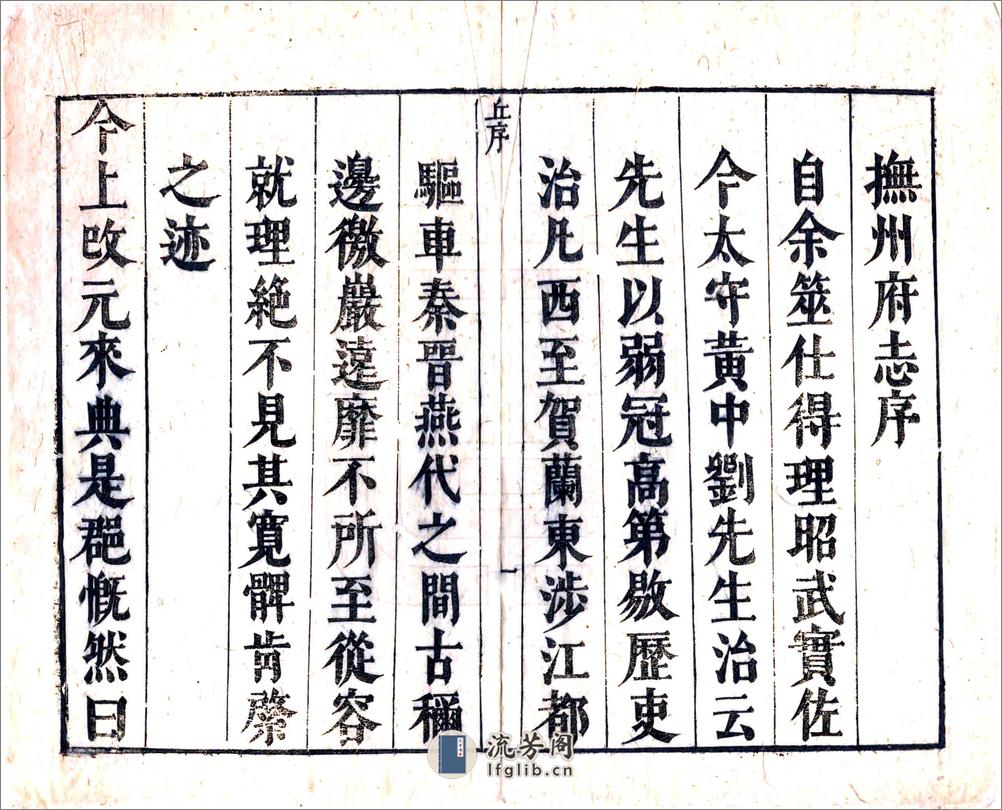 撫州府志序
自余筮仕得理昭武實佐
今太守黄中劉先生治云
先生以弱冠高第敭歷吏
治凡西至賀蘭東涉江都
丘序
一
驅車秦晋燕代之間古稱
邊徼巖遠靡不所至從容
就理絶不見其寛髀肯綮
之迹
今上改元來典是郡慨然曰
流芳阁
lfglib.cn